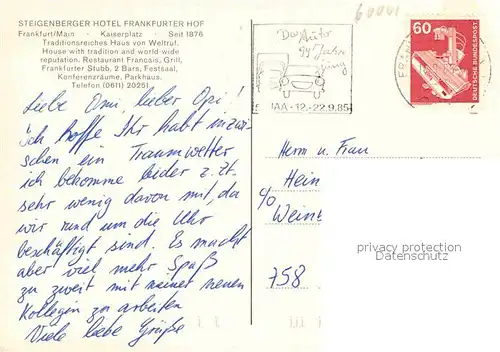 STEIGENBERGER HOTEL FRANKFURTER HOF
Frankfurt/Main · Kaiserplatz · Seit 1876
Traditionsreiches Haus von Weltruf.
House with tradition and world-wide
reputation. Restaurant Francais, Grill,
Frankfurter Stubb, 2 Bars, Festsaal,
Konferenzräume, Parkhaus.
Telefon (0611) 20251
Liebe Omi, lieber Opi!
Ich hoffe Ihr habt inzwi-
schen ein Traumwetter
ich bekomme leider z. Zt.
sehr wenig davon mit, da
wir rund um die Uhr
beschäftigt sind. Es macht
aber viel mehr Spaß
zu zweit mit meinen neuen
Kollegen zu arbeiten
Viele liebe Grüße
Das Auto
Jahre
jung
IAA-12.-22.9.85
60
DEUTSCHE BUNDESPOST
FRAN
Herrn u. Frau
Hein
c/o
Weint
758
privacy protection
Datenschutz